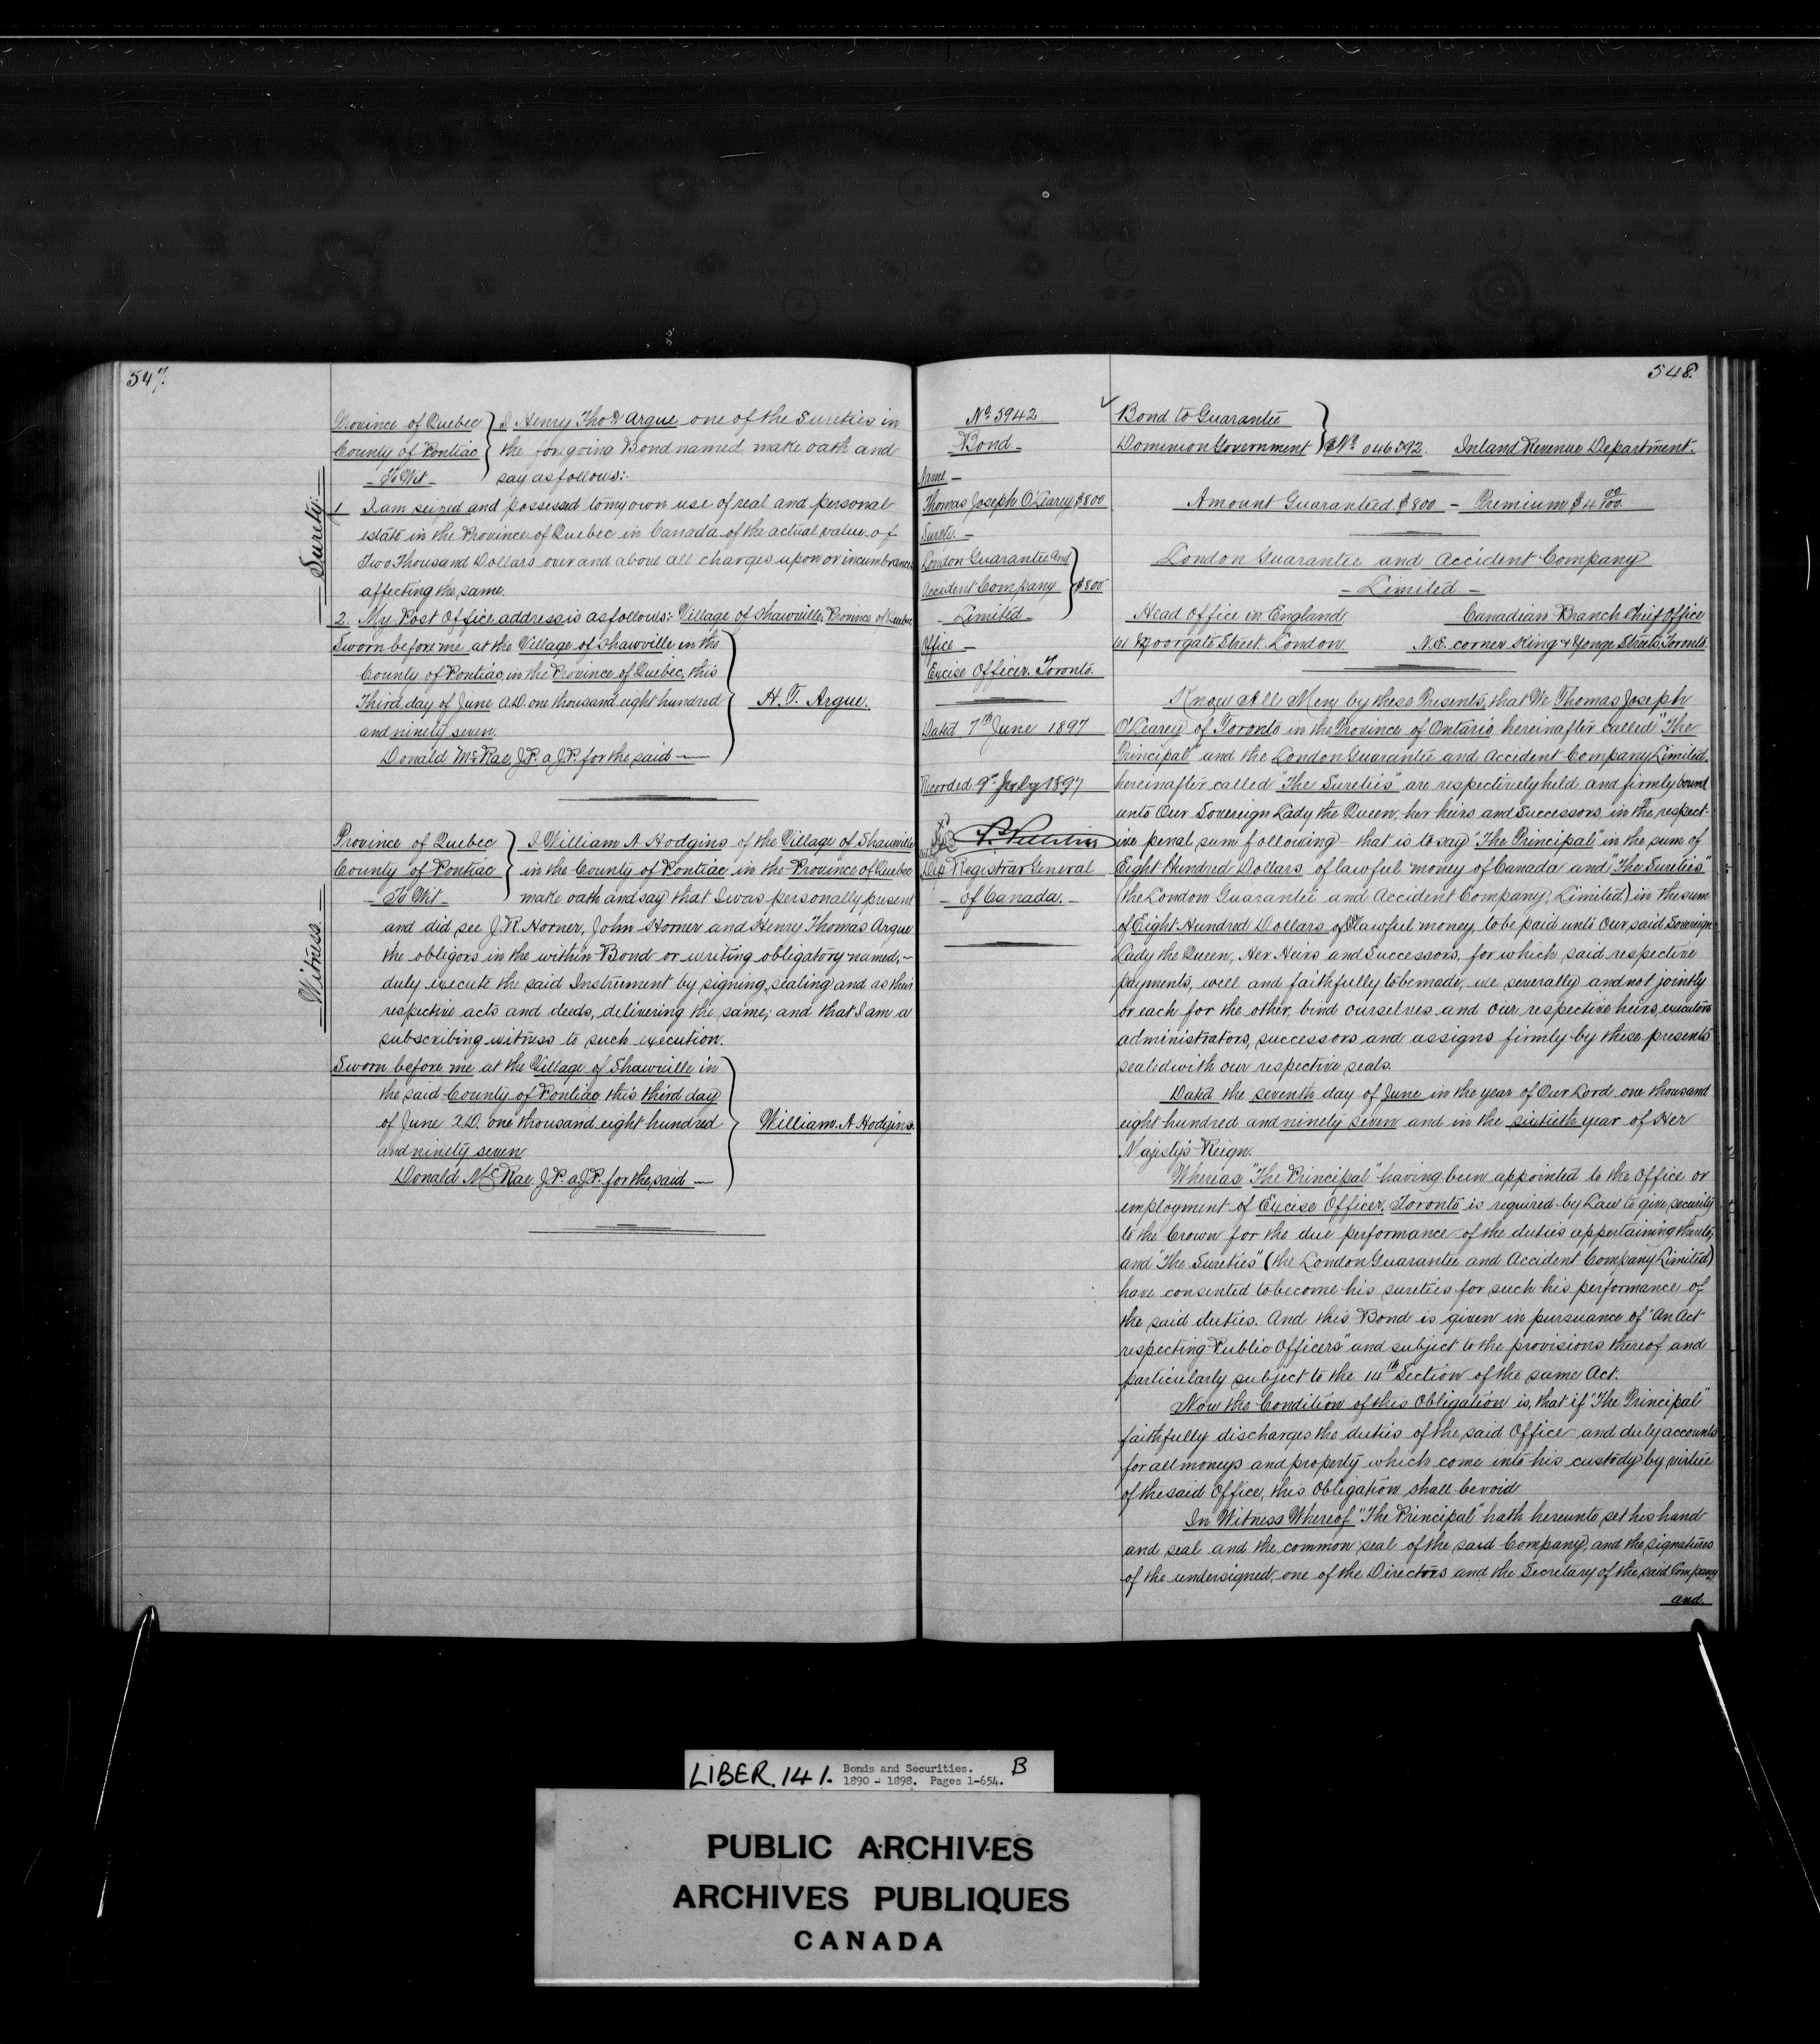 547.
Province of Quebec } I Henry Thos. Argue one of the Sureties in
County of Pontiac } the foregoing Bond named make oath and
- To Wit - } say as follows:-
- Surety. -
1 I am seized and possessed to my own use of real and personal
estate in the Province of Quebec in Canada of the actual value of
Two Thousand Dollars over and above all charges upon or incumbrances
affecting the same.
2. My Post Office address is as follows: Village of Shawville, Province of Quebec
Sworn before me at the Village of Shawville in the
County of Pontiac, in the Province of Quebec, this
Third day of June A.D. one thousand eight hundred } H. T. Argue.
and ninety seven.
Donald McRae, J.P. a J.P. for the said —
Province of Quebec } I William A Hodgins of the Village of Shawville
County of Pontiac } in the County of Pontiac in the Province of Quebec
- To Wit - } make oath and say that I was personally present
- Witness. -
and did see J. R. Horner, John Horner and Henry Thomas Argue
the obligors in the within Bond or writing obligatory named, -
duly execute the said Instrument by signing, sealing and as their
respective acts and deeds, delivering the same; and that I am a
subscribing witness to such execution.
Sworn before me at the Village of Shawville in
the said County of Pontiac this third day
of June A.D. one thousand eight hundred } William. A. Hodgins.
and ninety seven
Donald McRae. J.P. a J.P. for the said —
548.
No. 5942.
Bond -
Name -
Thomas Joseph O'Leary $800
Surety. -
London Guarantee And
Accident Company } $800
- Limited -
Office -
Excise Officer, Toronto.
Dated 7th June 1897
Recorded 9th July 1897
Dep Registrar General
- of Canada. -
Bond to Guarantee
Dominion Government } No. 046592. Inland Revenue Department.
Amount Guaranteed $800 - Premium $4 00/100.
London Guarantee and Accident Company
- Limited -
Head Office in England Canadian Branch Chief Office
61 Moorgate Street. London N.E. corner King & Yonge Streets Toronto.
Know All Men by these Presents, that We Thomas Joseph
O'Leary of Toronto in the Province of Ontario hereinafter called "The
Principal" and the London Guarantee and Accident Company Limited,
hereinafter called "The Sureties" are respectively held and firmly bound
unto Our Sovereign Lady the Queen, her heirs and Successors, in the respect-
ive penal sum following - that is to say "The Principal" in the sum of
Eight Hundred Dollars of lawful money of Canada and "The Sureties"
(the London Guarantee and Accident Company, Limited) in the sum
of Eight Hundred Dollars of lawful money to be paid unto Our said Sovereign
Lady the Queen, Her Heirs and Successors, for which said respective
payments, well and faithfully to be made, we severally and not jointly
or each for the other, bind ourselves and our respective heirs, executors
administrators, successors and assigns firmly by these presents
sealed with our respective seals.
Dated the seventh day of June in the year of Our Lord one thousand
eight hundred and ninety seven and in the sixtieth year of Her
Majesty's Reign.
Whereas, "The Principal" having been appointed to the Office or
employment of Excise Officer, Toronto is required by Law to give security
to the Crown for the due performance of the duties appertaining thereto;
and "The Sureties" (the London Guarantee and Accident Company Limited)
have consented to become his sureties for such his performance of
the said duties. And this Bond is given in pursuance of "An Act
respecting Public Officers" and subject to the provisions thereof and
particularly subject to the 14th Section of the same Act.
Now the Condition of this Obligation is, that if "The Principal"
faithfully discharges the duties of the said Office and duly accounts
for all moneys and property which come into his custody by virtue
of the said Office, this Obligation shall be void
In Witness Whereof "The Principal" hath hereunto set his hand
and seal and the common seal of the said Company, and the signatures
of the undersigned, one of the Directors and the Secretary of the said Company
and.
LIBER. 141. Bonds and Securities. B
1890 - 1898. Pages 1-654.
PUBLIC ARCHIVES
ARCHIVES PUBLIQUES
CANADA